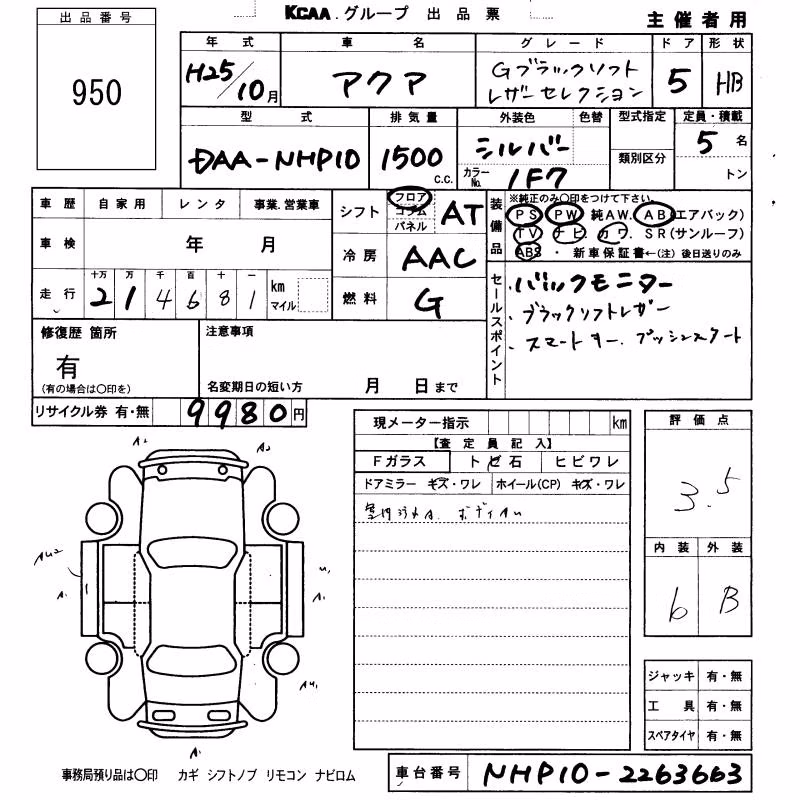 出品番号
950
KCAA.グループ 出品票
主催者用
年式 車名 グレード ドア 形状
H25/10月 アクア Gブラックソフト
レザーセレクション 5 HB
型式 排気量 外装色 色替 型式指定 定員・積載
DAA-NHP10 1500 c.c. シルバー 5名
類別区分
カラーNo. 1F7 トン
車歴 自家用 レンタ 事業.営業車
シフト フロア コラム パネル AT
装備品 ※純正のみ〇印をつけて下さい。
PS PW 純AW. AB(エアバック)
TV ナビ. カワ. SR(サンルーフ)
ABS ・新車保証書←(注)後日送りのみ
車検 年 月
冷房 AAC
走行 十万 万 千 百 十 一
214681 km マイル
燃料 G
セールスポイント
・バックモニター
・ブラックソフトレザー
・スマートキー.プッシュスタート
修復歴 箇所
有
(有の場合は〇印を)
注意事項
名変期日の短い方 月 日まで
リサイクル券 有・無 9980円
現メーター指示 km
【査定員記入】
Fガラス トビ石 ヒビワレ
ドアミラー キズ・ワレ ホイール(CP) キズ・ワレ
評価点
3.5
内装 外装
6 B
A2
A2
AU2
A1
U1
A1
AU1
A1
ジャッキ 有・無
工具 有・無
スペアタイヤ 有・無
事務局預り品は〇印 カギ シフトノブ リモコン ナビロム
車台番号 NHP10-2263663